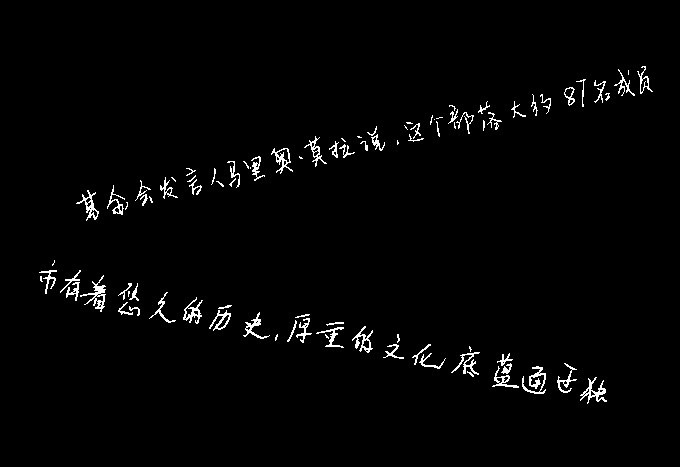 基金会发言人马里奥·莫拉说,这个部落大约87名成员
市有着悠久的历史,厚重的文化底蕴通过独